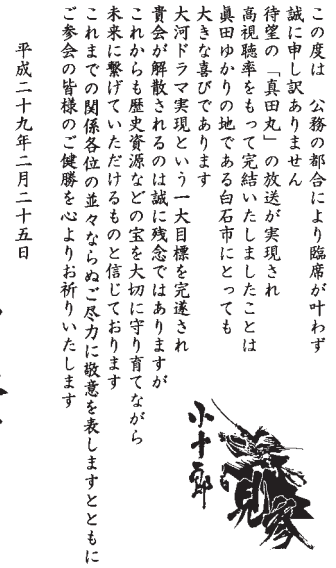 この度は　公務の都合により臨席が叶わず
誠に申し訳ありません
待望の「真田丸」の放送が実現され
高視聴率をもって完結いたしましたことは
眞田ゆかりの地である白石市にとっても
大きな喜びであります
大河ドラマ実現という一大目標を完遂され
貴会が解散されるのは誠に残念ではありますが
これからも歴史資源などの宝を大切に守り育てながら
未来に繋げていただけるものと信じております
これまでの関係各位の並々ならぬご尽力に敬意を表しますとともに
ご参会の皆様のご健勝を心よりお祈りいたします
平成二十九年二月二十五日
小十郎
見参